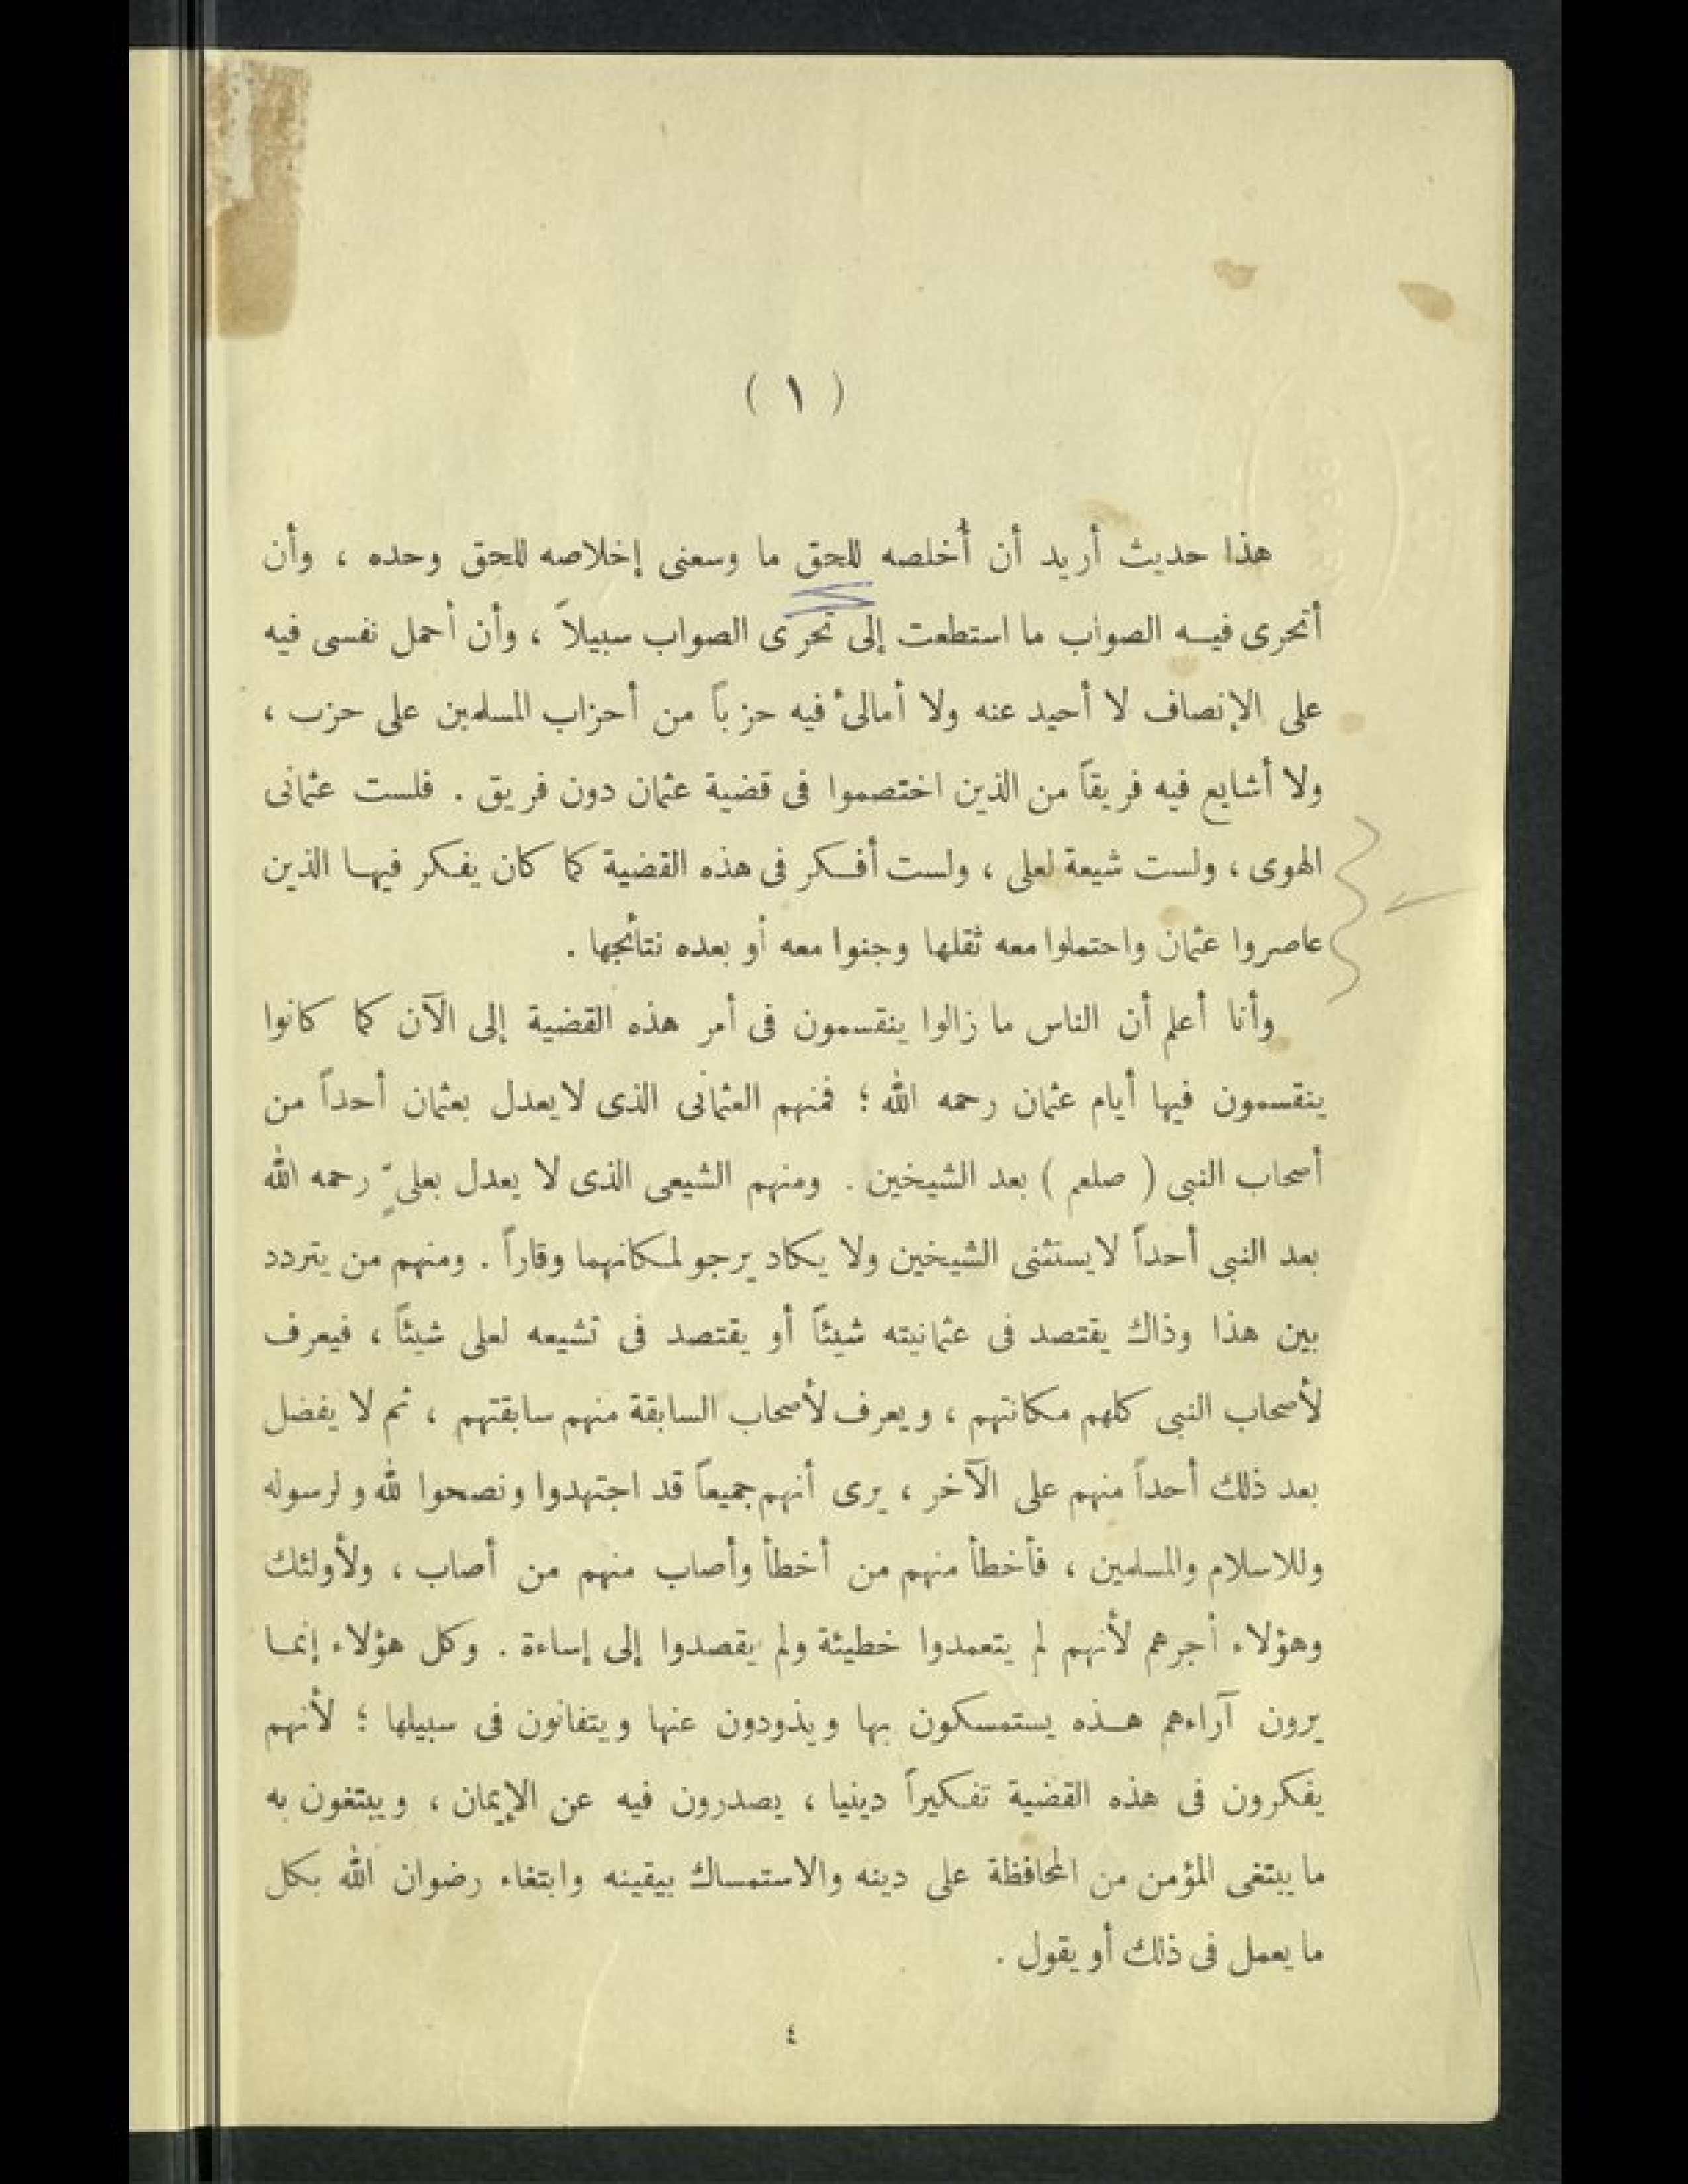 ( ١ )
هذا حديث أريد أن أُخلصه للحق ما وسعنى إخلاصه للحق وحده ، وأن
أتحرى فيه الصواب ما استطعت إلى تحرّى الصواب سبيلاً ، وأن أحمل نفسى فيه
على الإنصاف لا أحيد عنه ولا أمالئ فيه حزباً من أحزاب المسلمين على حزب ،
ولا أشايع فيه فريقاً من الذين اختصموا فى قضية عثمان دون فريق . فلست عثمانى
الهوى ، ولست شيعة لعلى ، ولست أفكر فى هذه القضية كما كان يفكر فيها الذين
عاصروا عثمان واحتملوا معه ثقلها وجنوا معه أو بعده نتائجها .
وأنا أعلم أن الناس ما زالوا ينقسمون فى أمر هذه القضية إلى الآن كما كانوا
ينقسمون فيها أيام عثمان رحمه الله ؛ فمنهم العثمانى الذى لا يعدل بعثمان أحداً من
أصحاب النبى ( صلعم ) بعد الشيخين . ومنهم الشيعى الذى لا يعدل بعلىّ رحمه الله
بعد النبى أحداً لا يستثنى الشيخين ولا يكاد يرجو لمكانهما وقاراً . ومنهم من يتردد
بين هذا وذاك يقتصد فى عثمانيته شيئاً أو يقتصد فى تشيعه لعلى شيئاً ، فيعرف
لأصحاب النبى كلهم مكانتهم ، ويعرف لأصحاب السابقة منهم سابقتهم ، ثم لا يفضل
بعد ذلك أحداً منهم على الآخر ، يرى أنهم جميعاً قد اجتهدوا ونصحوا لله ولرسوله
وللاسلام والمسلمين ، فأخطأ منهم من أخطأ وأصاب منهم من أصاب ، ولأولئك
وهؤلاء أجرهم لأنهم لم يتعمدوا خطيئة ولم يقصدوا إلى إساءة . وكل هؤلاء إنما
يرون آراءهم هذه يستمسكون بها ويذودون عنها ويتفانون فى سبيلها ؛ لأنهم
يفكرون فى هذه القضية تفكيراً دينيا ، يصدرون فيه عن الإيمان ، ويبتغون به
ما يبتغى المؤمن من المحافظة على دينه والاستمساك بيقينه وابتغاء رضوان الله بكل
ما يعمل فى ذلك أو يقول .
٤